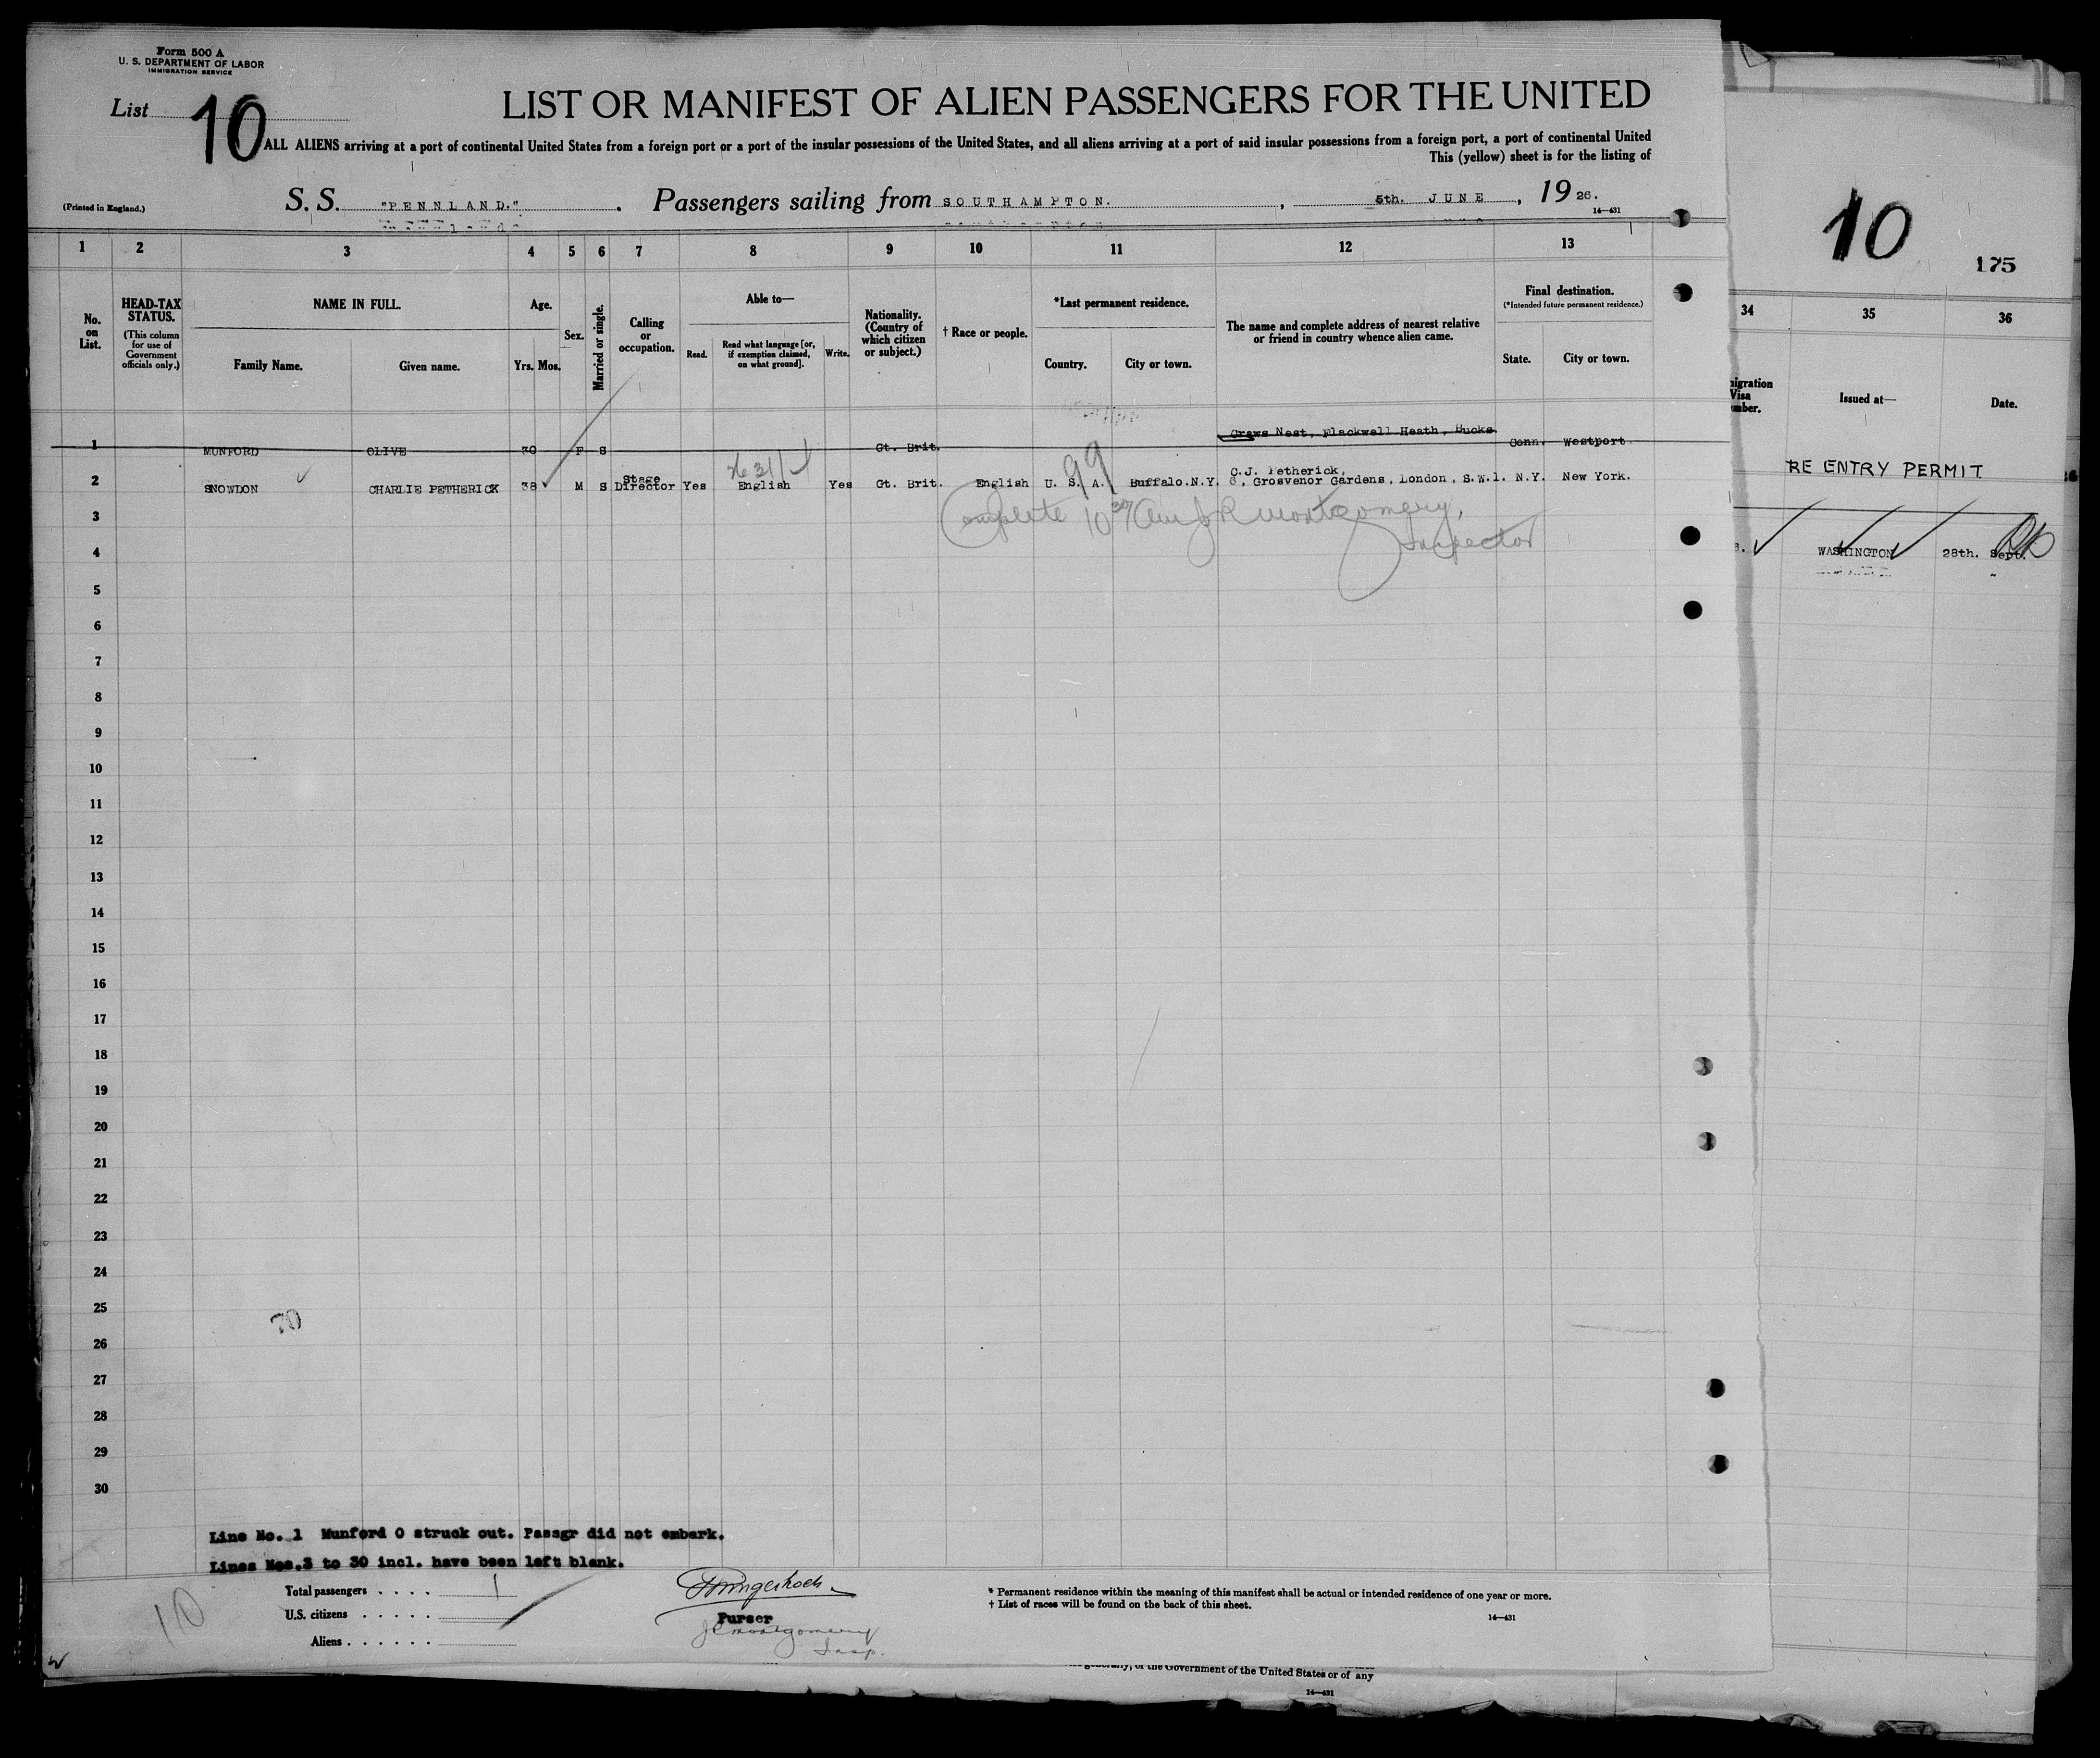 Form 500 A
U. S. DEPARTMENT OF LABOR
IMMIGRATION SERVICE
List 10
LIST OR MANIFEST OF ALIEN PASSENGERS FOR THE UNITED
ALL ALIENS arriving at a port of continental United States from a foreign port or a port of the insular possessions of the United States, and all aliens arriving at a port of said insular possessions from a foreign port, a port of continental United
This (yellow) sheet is for the listing of
(Printed in England.)
S. S. "PENNLAND." . Passengers sailing from SOUTHAMPTON. , 5th. JUNE , 19 26.
14—431
10
175
1 2 3 4 5 6 7 8 9 10 11 12 13
34 35 36
No. on List.
HEAD-TAX STATUS.
(This column for use of Government officials only.)
NAME IN FULL.
Family Name. Given name.
Age.
Yrs. Mos.
Sex.
Married or single.
Calling or occupation.
Able to—
Read. Read what language [or, if exemption claimed, on what ground]. Write.
Nationality. (Country of which citizen or subject.)
† Race or people.
*Last permanent residence.
Country. City or town.
The name and complete address of nearest relative or friend in country whence alien came.
Final destination.
(*Intended future permanent residence.)
State. City or town.
Issued at—
Date.
1 MUNFORD OLIVE 30 F S Gt. Brit. Craws Nest, Flackwell Heath, Bucks. Conn. Westport
2 SNOWDON CHARLIE PETHERICK 38 M S Stage Director Yes English Yes Gt. Brit. English U. S. A. Buffalo.N.Y. C.J. Petherick, 8, Grosvenor Gardens, London, S.W.1. N.Y. New York.
99
RE ENTRY PERMIT
3
Complete 10 30/ am J R Montgomery,
Inspector
4
WASHINGTON 28th. Sept.
5
6
7
8
9
10
11
12
13
14
15
16
17
18
19
20
21
22
23
24
25
70
26
27
28
29
30
Line No. 1 Munford O struck out. Passgr did not embark.
Lines Nos.3 to 30 incl. have been left blank.
10
Total passengers . . . . 1
U.S. citizens . . . . .
Aliens . . . . . .
Purser
J R Montgomery
Insp.
* Permanent residence within the meaning of this manifest shall be actual or intended residence of one year or more.
† List of races will be found on the back of this sheet.
14—431
of the Government of the United States or of any
14—431